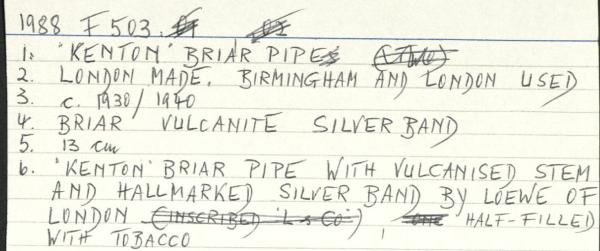 1988 F 503.
1. 'KENTON' BRIAR PIPE (TWO)
2. LONDON MADE. BIRMINGHAM AND LONDON USED
3. c. 1930/1940
4. BRIAR VULCANITE SILVER BAND
5. 13 cm
6. 'KENTON' BRIAR PIPE WITH VULCANISED STEM
AND HALLMARKED SILVER BAND BY LOEWE OF
LONDON (INSCRIBED 'L & CO') ONE HALF-FILLED
WITH TOBACCO